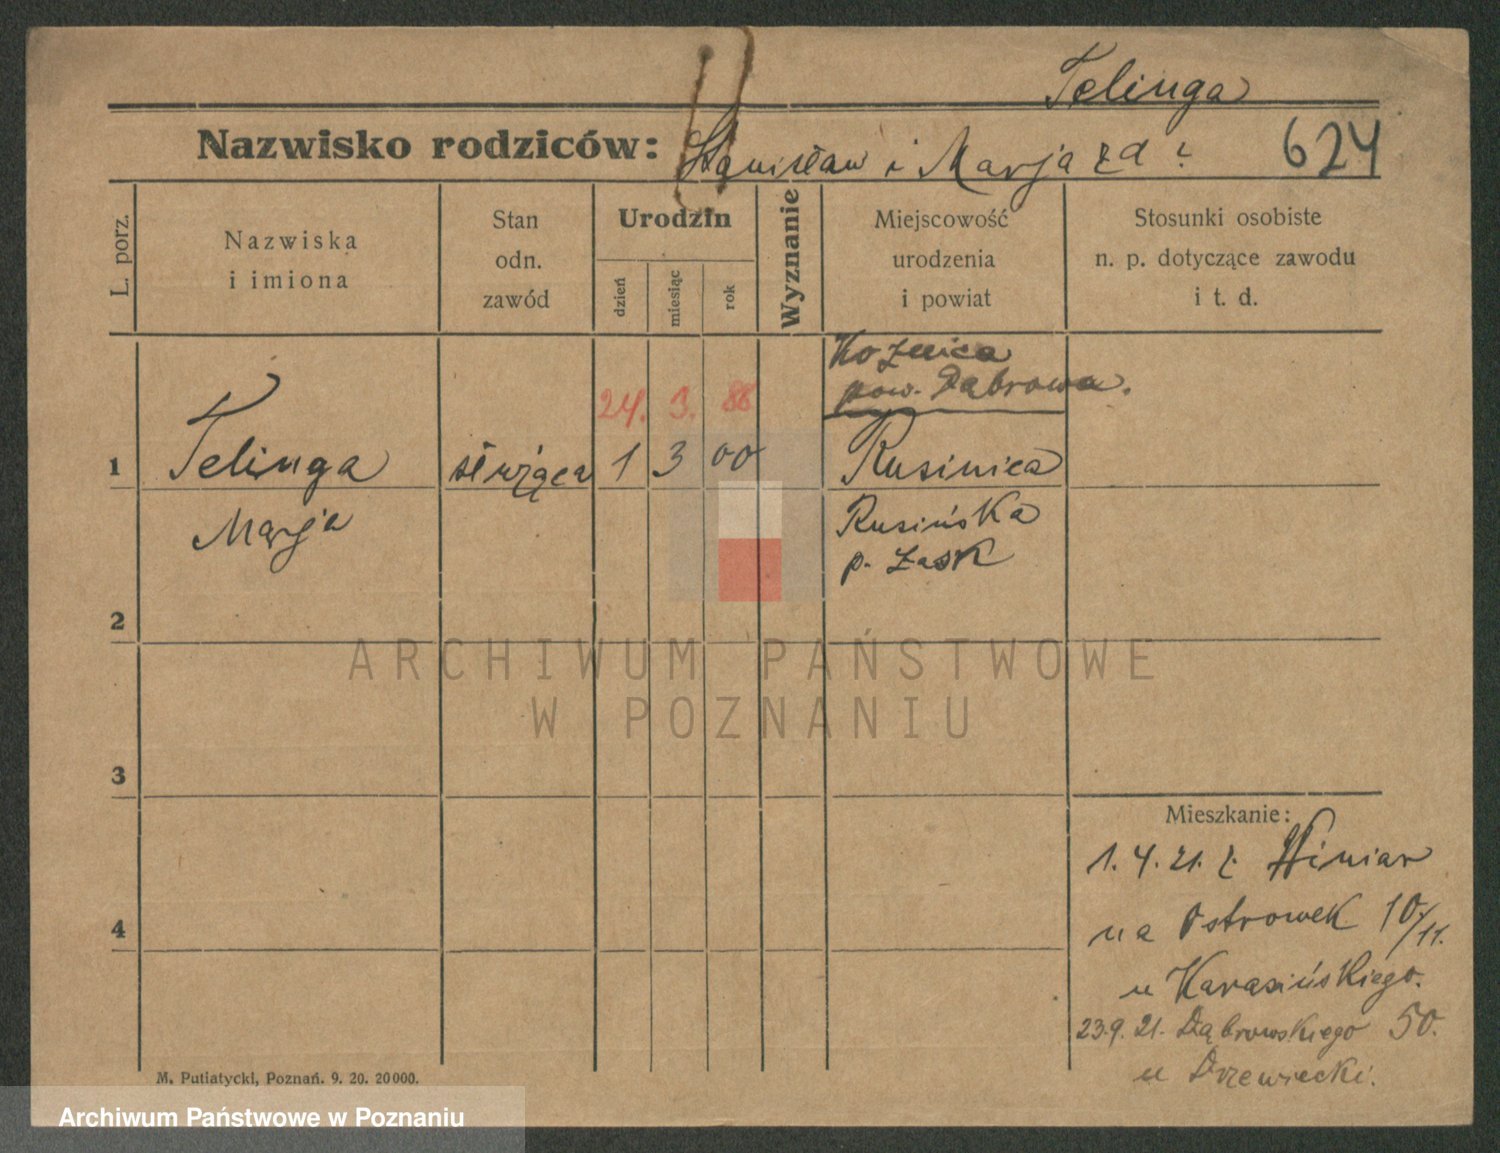 Telinga
Nazwisko rodziców: Stanisław i Marja zd ?
624
L. porz.
Nazwiska
i imiona
Stan
odn.
zawód
Urodzin
dzień
miesiąc
rok
Wyznanie
Miejscowość
urodzenia
i powiat
Stosunki osobiste
n. p. dotyczące zawodu
i t. d.
pow. Dąbrowa.
24. 3. 86
1 Telinga służąca 1 3 00 Rusinica
Marja
Rusińska
p. Łask
2
3
4
Mieszkanie:
1.4.21. z Winiar
na Ostrowek 10/11.
u Karasińskiego.
23.9.21. Dąbrowskiego 50.
u Drzewiecki.
M. Putiatycki, Poznań. 9. 20. 20000.
ARCHIWUM PAŃSTWOWE
W POZNANIU
Archiwum Państwowe w Poznaniu